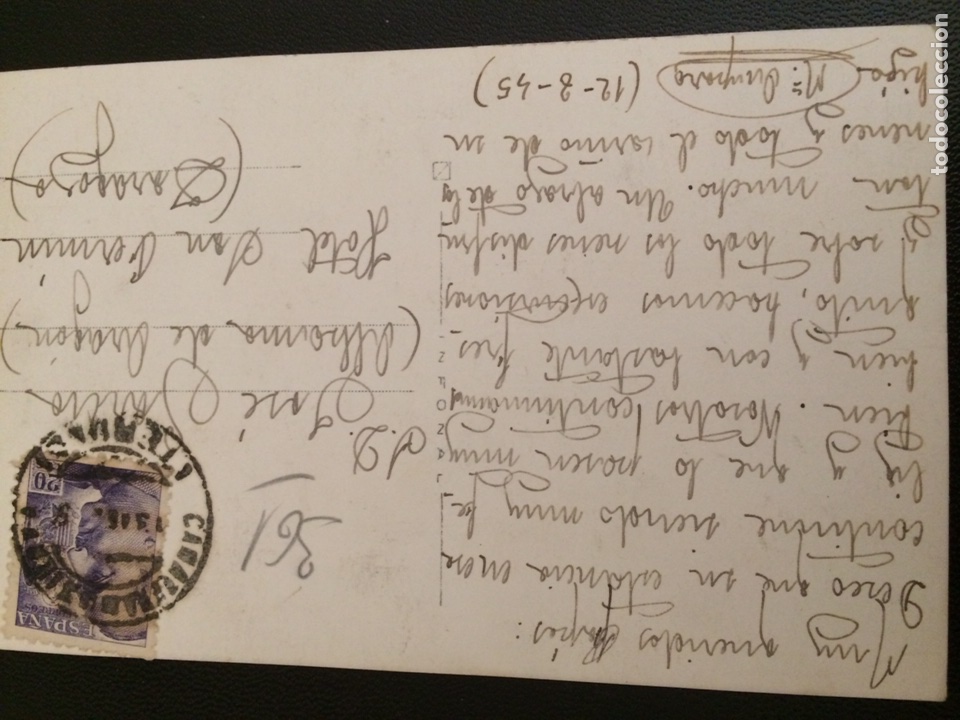 Muy queridos Papás:
Deseo que su estancia en esa
continúe siendo muy fe-
liz y que lo pasen muy
bien. Nosotros continuamos
bien y con bastante fres-
quito, hacemos excursiones
y sobre todo los nenes disfru
tan mucho. Un abrazo de los
nenes y todo el cariño de su
hija
Mª Amparo (12-8-45)
361
S. D. José García
(Alhama de Aragón)
Hotel San Fermín
(Zaragoza)
ESPAÑA
CORREOS
20
todocoleccion